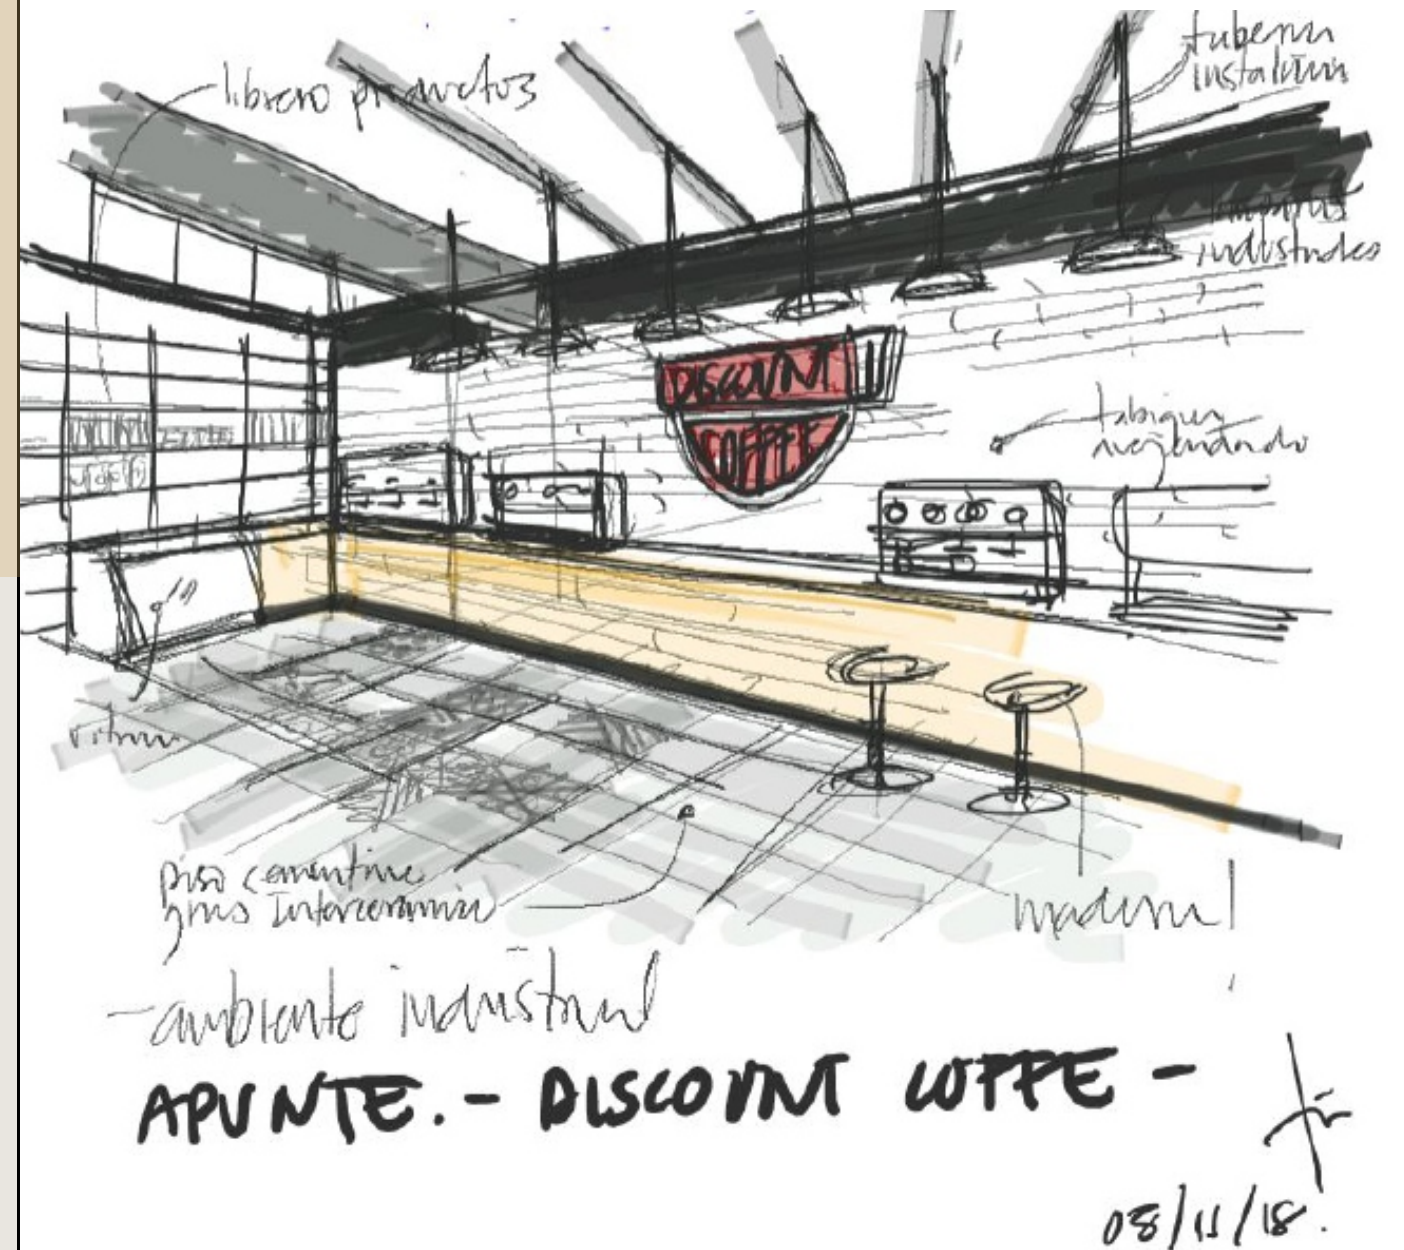 librero productos
tuberia
instalación
lamparas
industriales
DISCOUNT
COFFEE
tabique
vitrina
piso cementine
gris Interceramic
madera
-ambiente industrial
APUNTE.- DISCOUNT COFFE -
08/11/18.